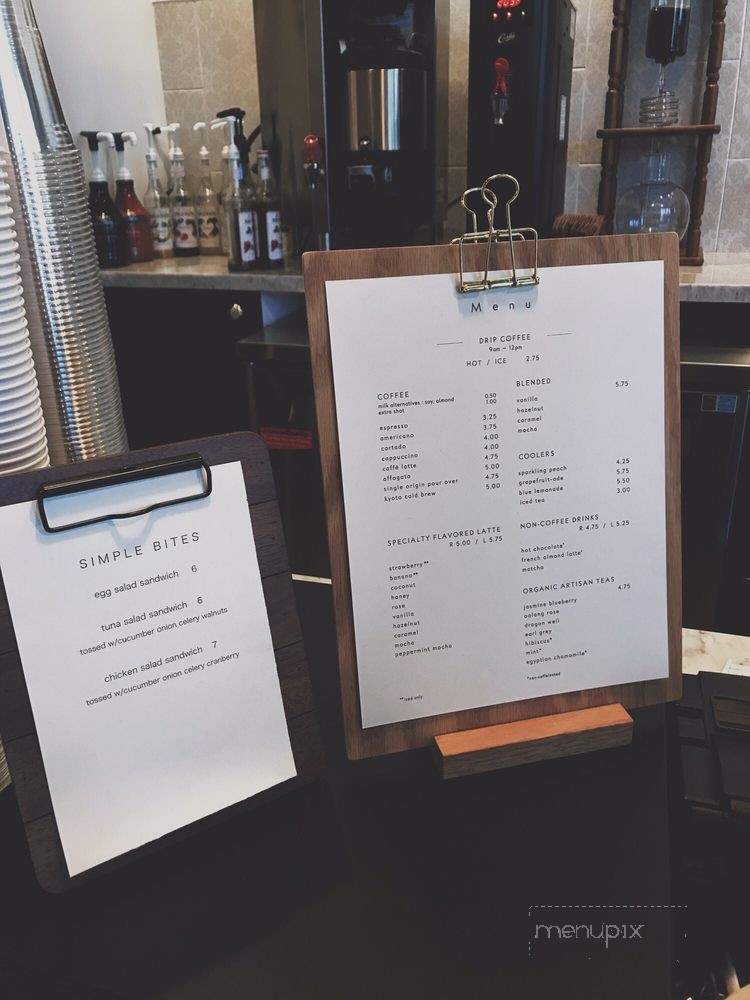 Menu
DRIP COFFEE
9am – 12pm
HOT / ICE 2.75
COFFEE
milk alternatives : soy, almond 0.50
extra shot 1.00
espresso 3.25
americano 3.75
cortado 4.00
cappuccino 4.00
caffé latte 4.75
affogato 5.00
single origin pour over 4.75
kyoto cold brew 5.00
SPECIALTY FLAVORED LATTE
R 5.00 / L 5.75
strawberry**
banana**
coconut
honey
rose
vanilla
hazelnut
caramel
mocha
peppermint mocha
**iced only
BLENDED 5.75
vanilla
hazelnut
caramel
mocha
COOLERS
sparkling peach 4.25
grapefruit-ade 5.75
blue lemonade 5.50
iced tea 3.00
NON-COFFEE DRINKS
R 4.75 / L 5.25
hot chocolate*
french almond latte*
matcha
ORGANIC ARTISAN TEAS 4.75
jasmine blueberry
oolong rose
dragon well
earl grey
hibiscus*
mint*
egyptian chamomile*
*non-caffeinated
SIMPLE BITES
egg salad sandwich 6
tuna salad sandwich 6
tossed w/cucumber onion celery walnuts
chicken salad sandwich 7
tossed w/cucumber onion celery cranberry
menupix